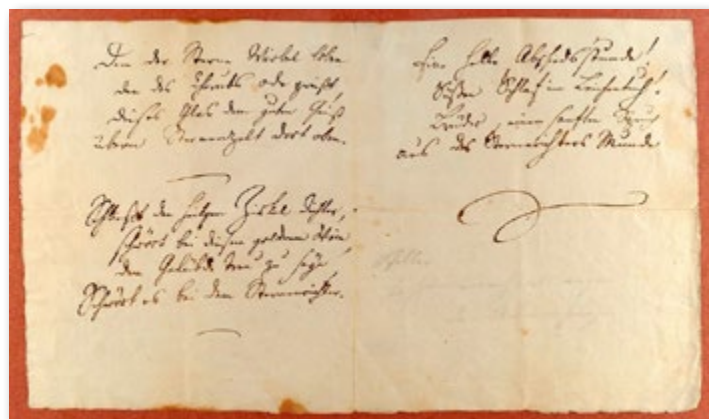 Den der Sterne Wirbel loben
den des Seraphs Ode preißt,
dieses Glas dem guten Geist
überm Sternenzelt dort oben.
Schließt den heilgen Zirkel dichter,
schwört bei diesem goldenen Wein
dem Gelübde treu zu seyn,
Schwört es bei dem Sternenrichter.
Eine helle Abschiedsstunde!
Süßen Schlaf im Leichentuch!
Brüder, einen sanften Spruch
aus des Sternenrichters Munde